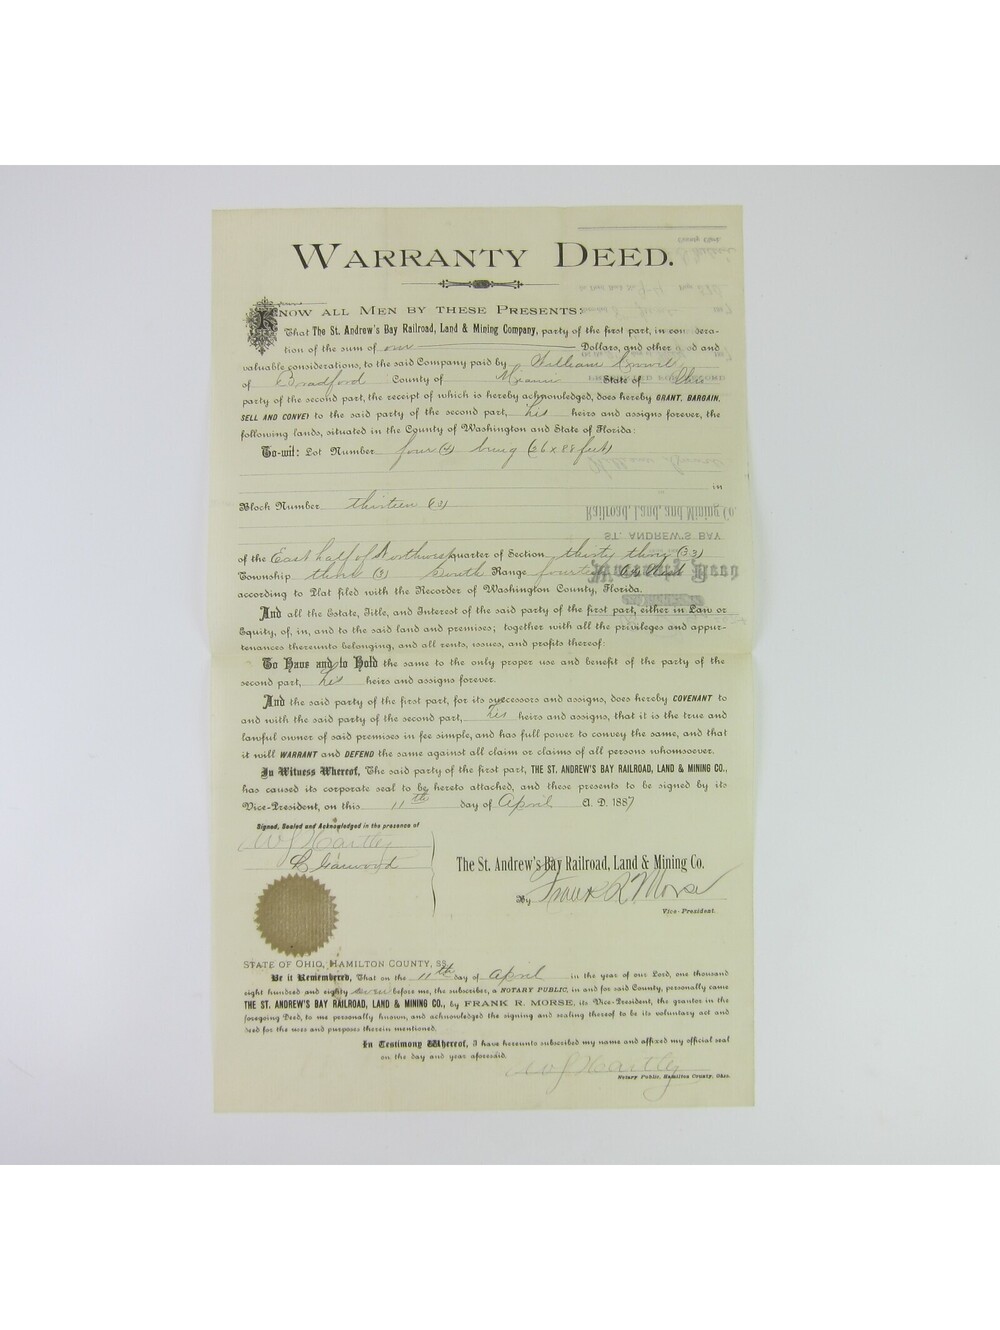 WARRANTY DEED.
KNOW ALL MEN BY THESE PRESENTS:
That The St. Andrew's Bay Railroad, Land & Mining Company, party of the first part, in consideration
of the sum of one Dollars, and other good and
valuable considerations, to the said Company paid by William
of Bradford County of Miami State of Ohio
party of the second part, the receipt of which is hereby acknowledged, does hereby GRANT, BARGAIN,
SELL AND CONVEY to the said party of the second part, his heirs and assigns forever, the
following lands, situated in the County of Washington and State of Florida:
To-wit: Lot Number four (4) being 66 x 88 feet
in
Block Number thirteen (13)
of the East half of Northwest quarter of Section thirty three (33)
Township three (3) South Range fourteen (14) West
according to Plat filed with the Recorder of Washington County, Florida.
And all the Estate, Title, and Interest of the said party of the first part, either in Law or
Equity, of, in, and to the said land and premises; together with all the privileges and appur-
tenances thereunto belonging, and all rents, issues, and profits thereof:
To Have and to Hold the same to the only proper use and benefit of the party of the
second part, his heirs and assigns forever.
And the said party of the first part, for its successors and assigns, does hereby COVENANT to
and with the said party of the second part, his heirs and assigns, that it is the true and
lawful owner of said premises in fee simple, and has full power to convey the same, and that
it will WARRANT and DEFEND the same against all claim or claims of all persons whomsoever.
In Witness Whereof, The said party of the first part, THE ST. ANDREW'S BAY RAILROAD, LAND & MINING CO.,
has caused its corporate seal to be hereto attached, and these presents to be signed by its
Vice-President, on this 11th day of April A. D. 1887
Signed, Sealed and Acknowledged in the presence of
W J Hartley
L Garwood
The St. Andrew's Bay Railroad, Land & Mining Co.
By Frank R Morse
Vice-President.
STATE OF OHIO, HAMILTON COUNTY, SS.
Be it Remembered, That on the 11th day of April in the year of our Lord, one thousand
eight hundred and eighty seven before me, the subscriber, a NOTARY PUBLIC, in and for said County, personally came
THE ST. ANDREW'S BAY RAILROAD, LAND & MINING CO., by FRANK R. MORSE, its Vice-President, the grantor in the
foregoing Deed, to me personally known, and acknowledged the signing and sealing thereof to be its voluntary act and
deed for the uses and purposes therein mentioned.
In Testimony Whereof, I have hereunto subscribed my name and affixed my official seal
on the day and year aforesaid.
W J Hartley
Notary Public, Hamilton County, Ohio.